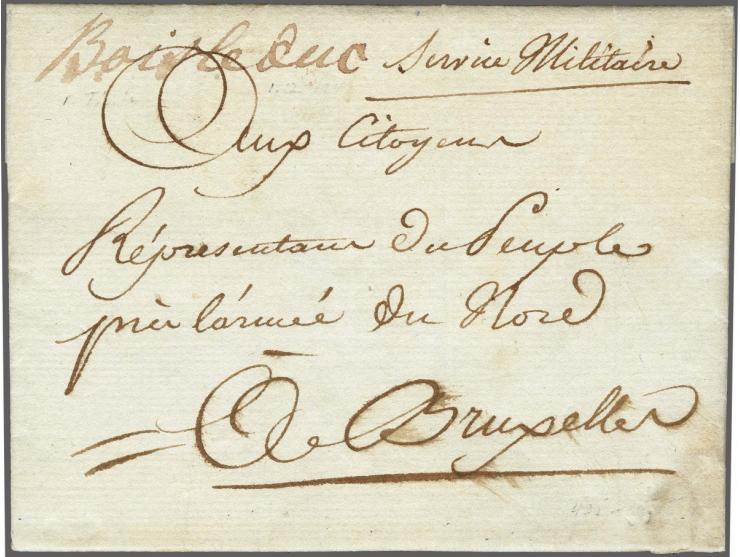 Boisleduc Service Militaire
Aux Citoyens
Répresentans du Peuple
près l'armée du Nord
A Bruxelles